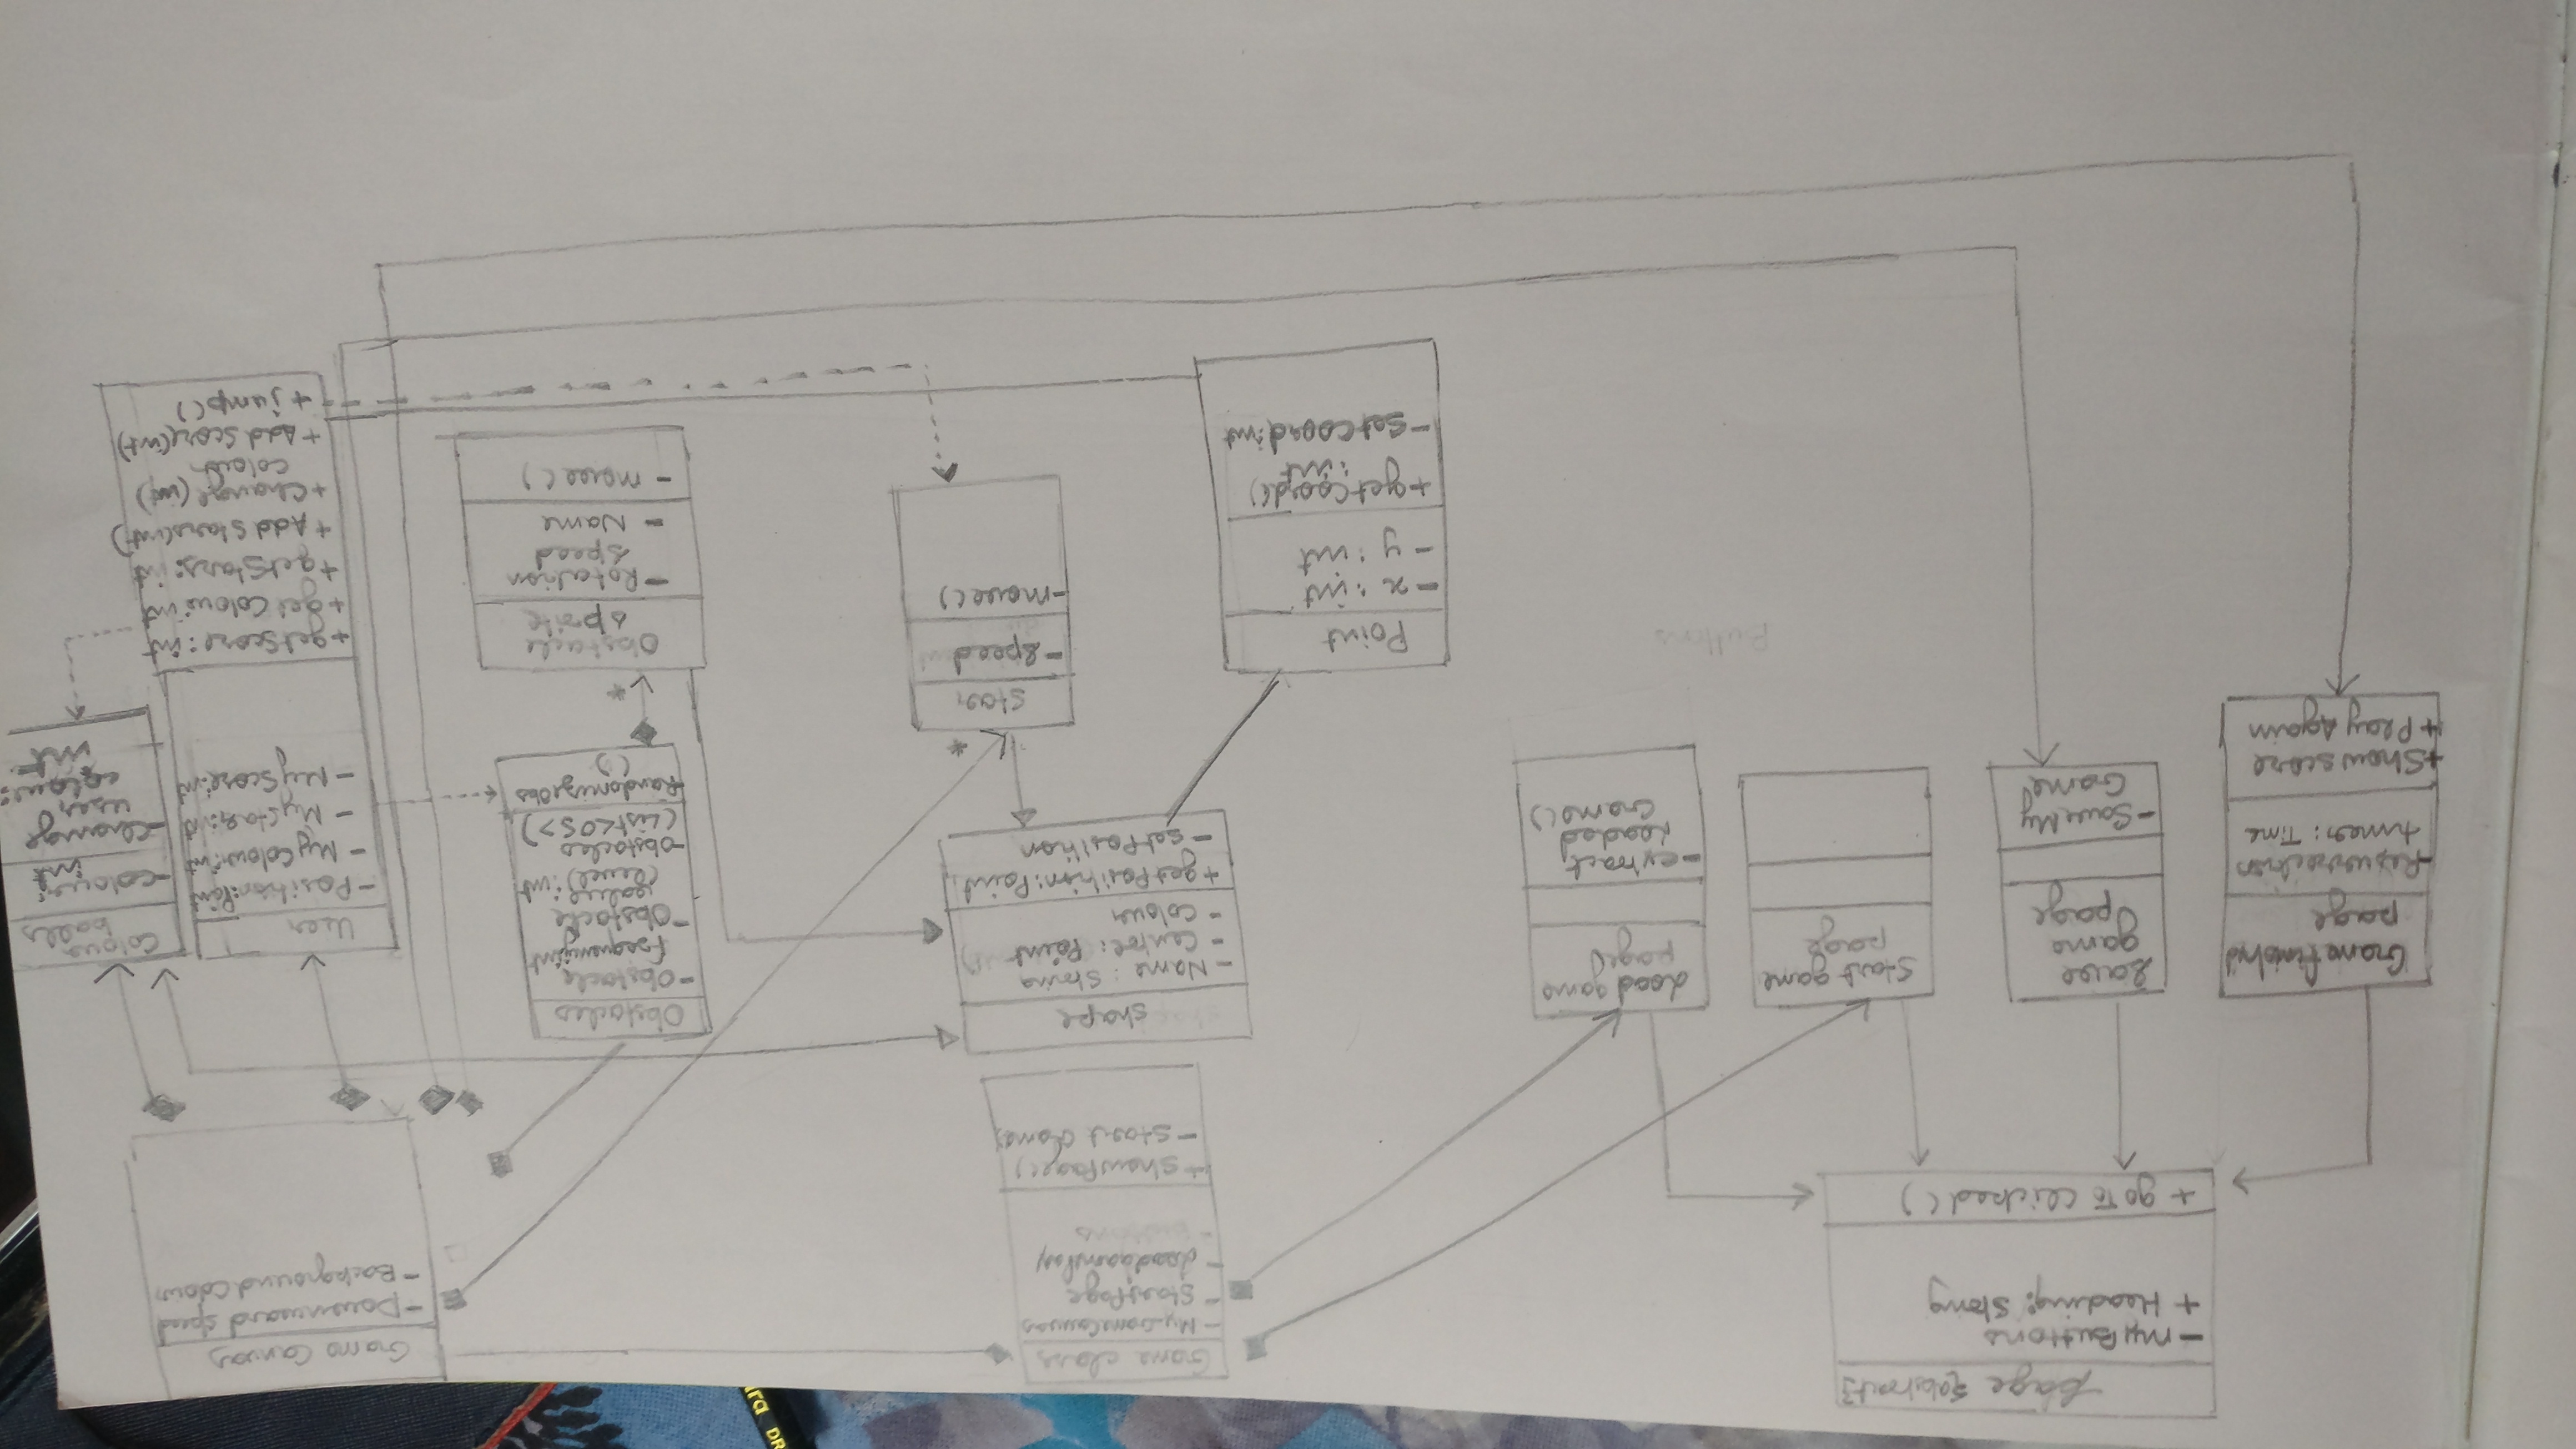 Page {abstract}
- myButtons
+ Heading: String
+ goTo Clicked()
Game class
- My GameCanvas
- StartPage
- Buttons
+ showPage()
- Start Game)
Game Canvas
- Downward speed
- Background Colour
Game finished
page
- Resurrection
timer: Time
+ Show score
+ Play Again
Save
game
page
- Save My
Game
Start game
page
Load game
page
- extract
Loaded
Game()
shape
- Name : String
- Centre: Point
- Colour
+ getPosition: Point
- setPosition
Obstacles
- Obstacle
frequency:int
- Obstacle
value
(level) : int
- Obstacles
(List<OS>)
RandomizeObs
()
User
- Position:Point
- MyColour:int
- MyStar:int
- MyScore:int
+ getScore: int
+ getColour:int
+ getStars: int
+ Add Stars(int)
+ Change (int)
Colour
+ Add Score(int)
+ jump()
Colour
balls
- Colour:
int
- Change
user
colour:
int
Buttons
Point
- x : int
- y : int
+ getCoord()
: int
- SetCoord:int
*
Star
- Speed
- move()
*
Obstacle
sprite
- Rotation
speed
- Name
- move()
DR